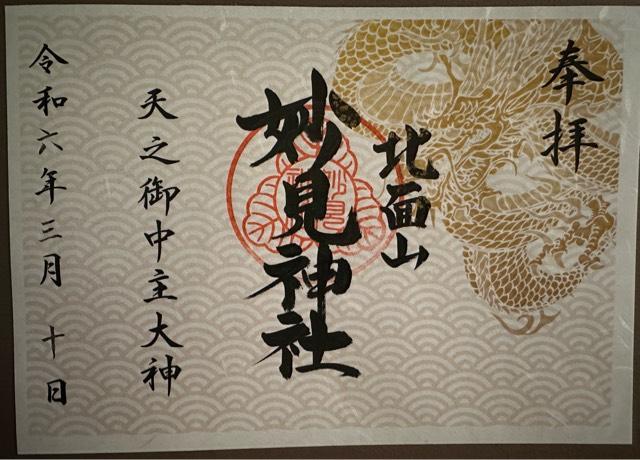 奉拝
北面山
妙見神社
天之御中主大神
令和六年三月十日